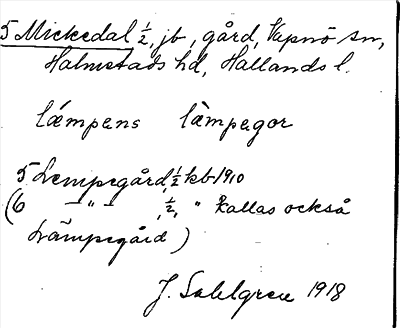 5 Mickedal ½, jb, gård, Vapnö sn,
Halmstads hd, Hallands l.
lǽmpens læ̀mpegor
5 Lempegård, ½ kb 1910
(6 –"– , ½, " kallas också
Lämpegård)
J. Sahlgren 1918